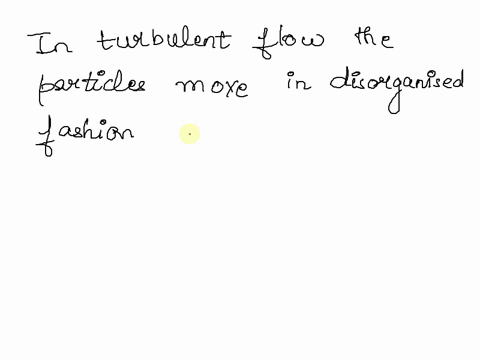 In turbulent flow the
particles move in disorganised
fashion